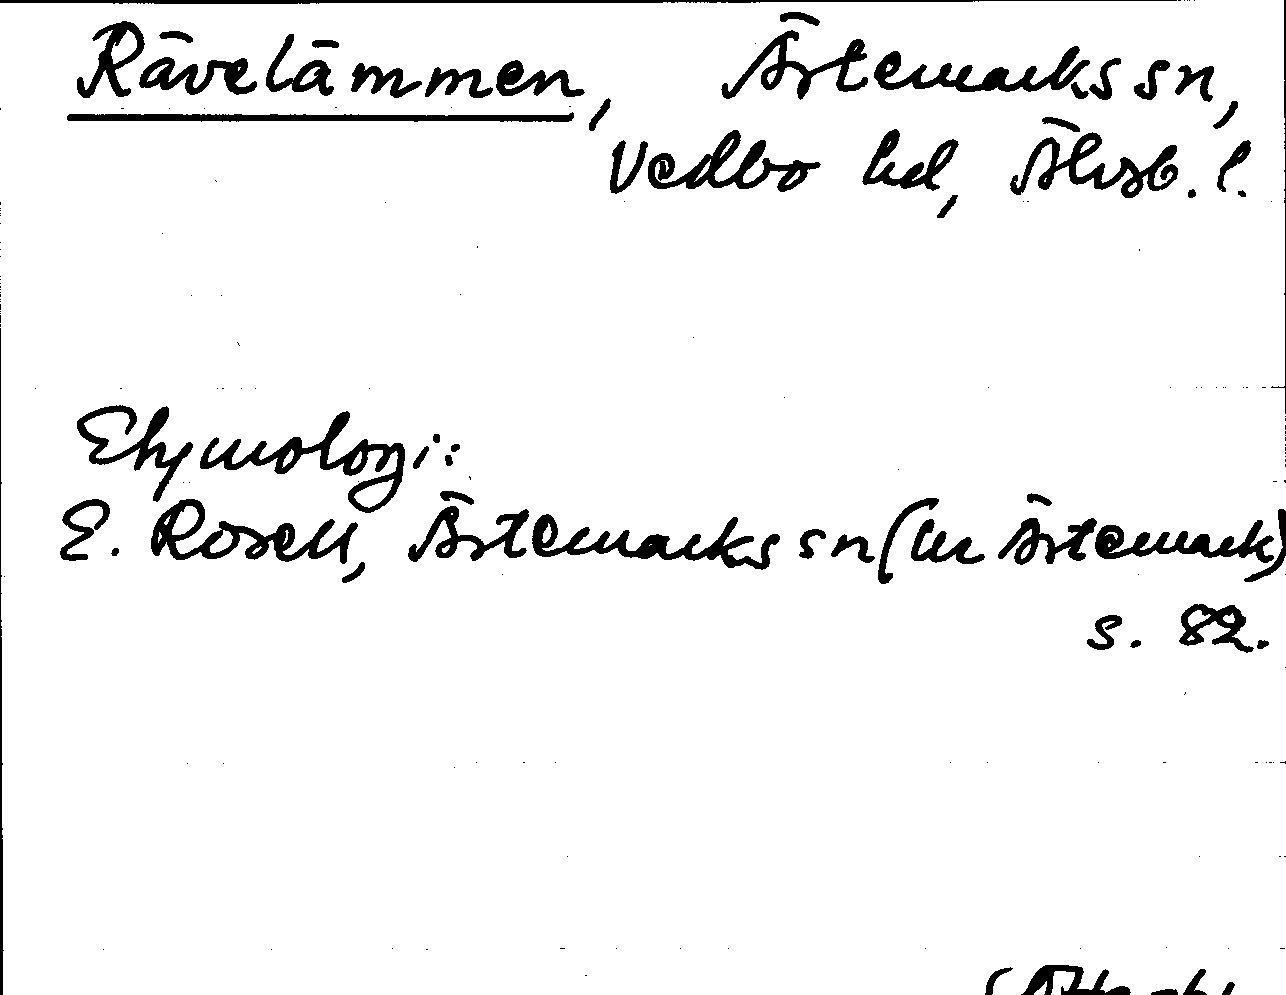 Rävelämmen, Ärtemarks sn,
Vedbo hd, Älvsb. l.
Etymologi:
E. Rosell, Ärtemarks sn (ur Ärtemark)
s. 82.